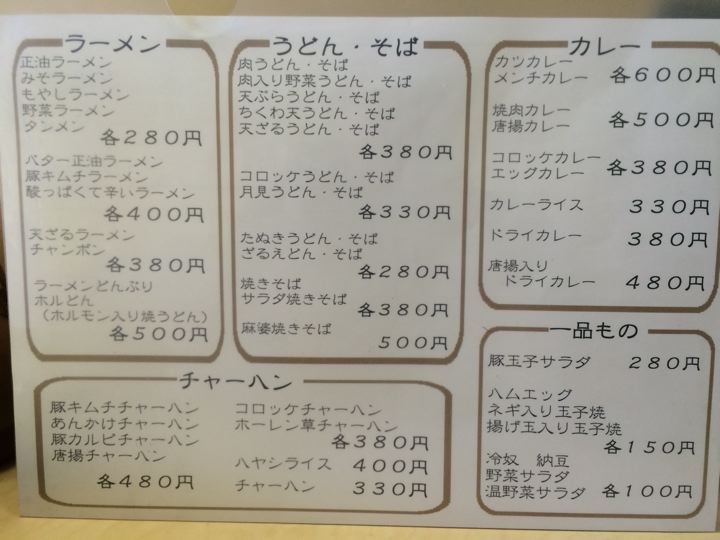 ラーメン
正油ラーメン
みそラーメン
もやしラーメン
野菜ラーメン
タンメン
各280円
バター正油ラーメン
豚キムチラーメン
酸っぱくて辛いラーメン
各400円
天ざるラーメン
チャンポン
各380円
ラーメンどんぶり
ホルどん
(ホルモン入り焼うどん)
各500円
うどん・そば
肉うどん・そば
肉入り野菜うどん・そば
天ぷらうどん・そば
ちくわ天うどん・そば
天ざるうどん・そば
各380円
コロッケうどん・そば
月見うどん・そば
各330円
たぬきうどん・そば
ざるえどん・そば
各280円
焼きそば
サラダ焼きそば
各380円
麻婆焼きそば
500円
カレー
カツカレー
メンチカレー 各600円
焼肉カレー
唐揚カレー 各500円
コロッケカレー
エッグカレー 各380円
カレーライス 330円
ドライカレー 380円
唐揚入り
ドライカレー 480円
チャーハン
豚キムチチャーハン
あんかけチャーハン
豚カルビチャーハン
唐揚チャーハン
各480円
コロッケチャーハン
ホーレン草チャーハン
各380円
ハヤシライス 400円
チャーハン 330円
一品もの
豚玉子サラダ 280円
ハムエッグ
ネギ入り玉子焼
揚げ玉入り玉子焼
各150円
冷奴 納豆
野菜サラダ
温野菜サラダ 各100円